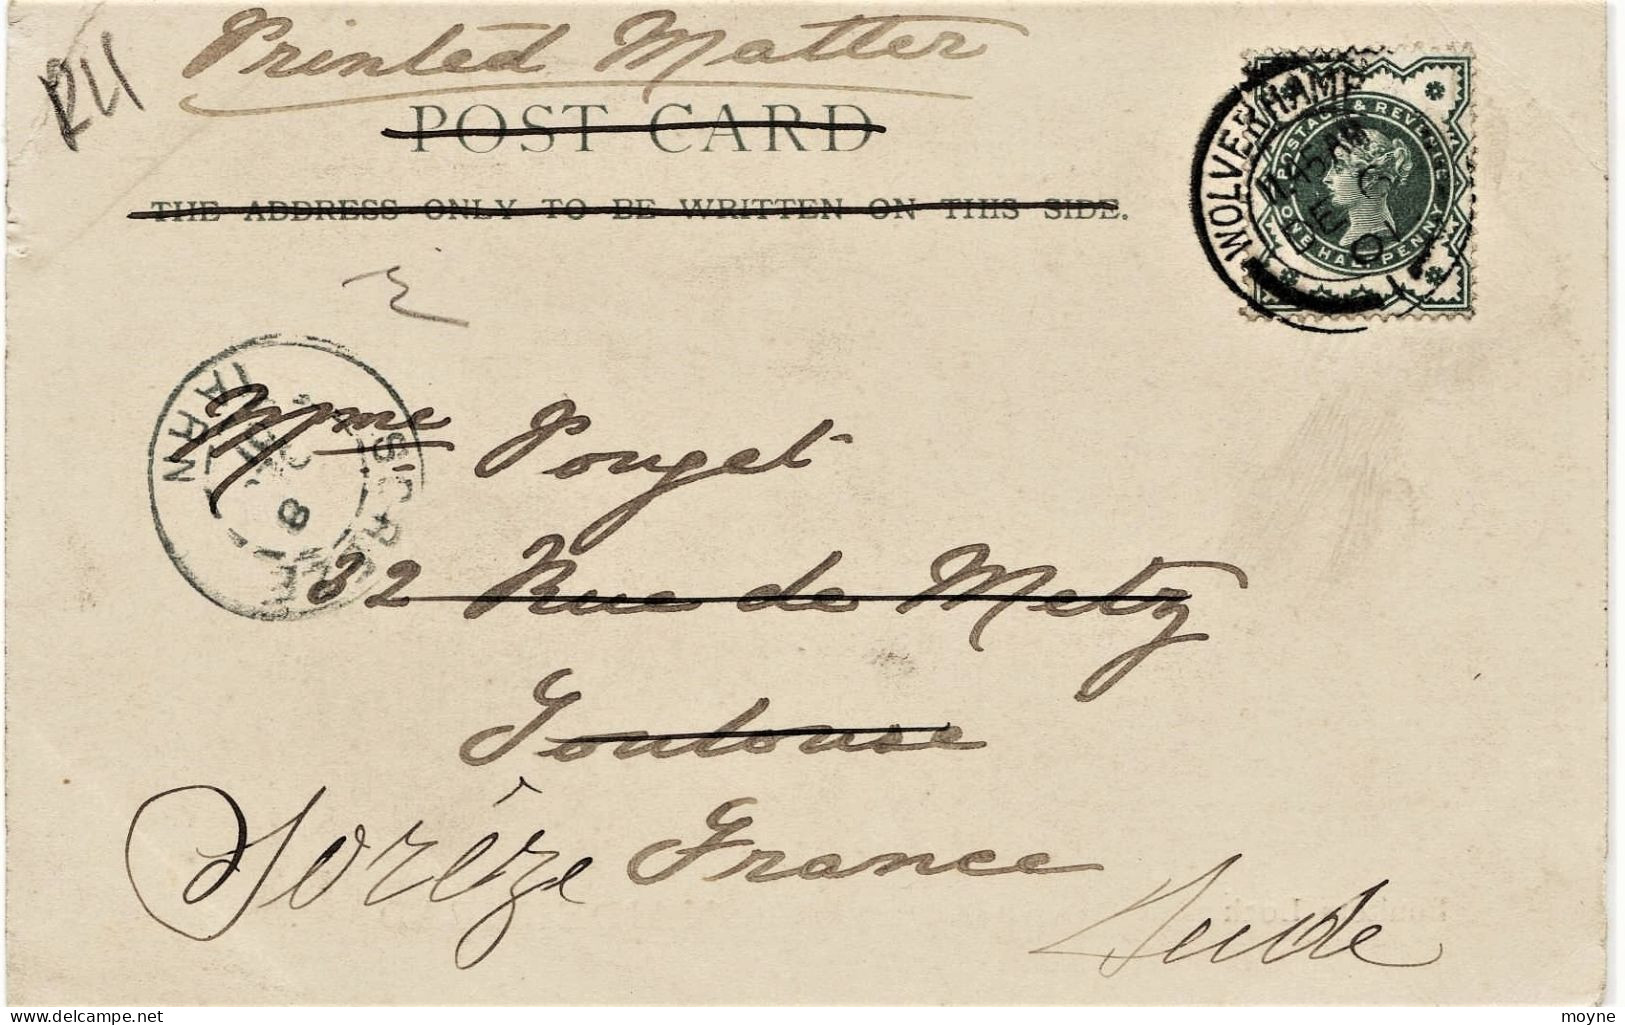 Printed Matter
POST CARD
THE ADDRESS ONLY TO BE WRITTEN ON THIS SIDE.
WOLVERHAMP
7.45 AM
FE 6
01
POSTAGE & REVENUE
ONE HALF PENNY
8
TARN
Mme Pouget
32 Rue de Metz
Toulouse
Sorèze France
moyne